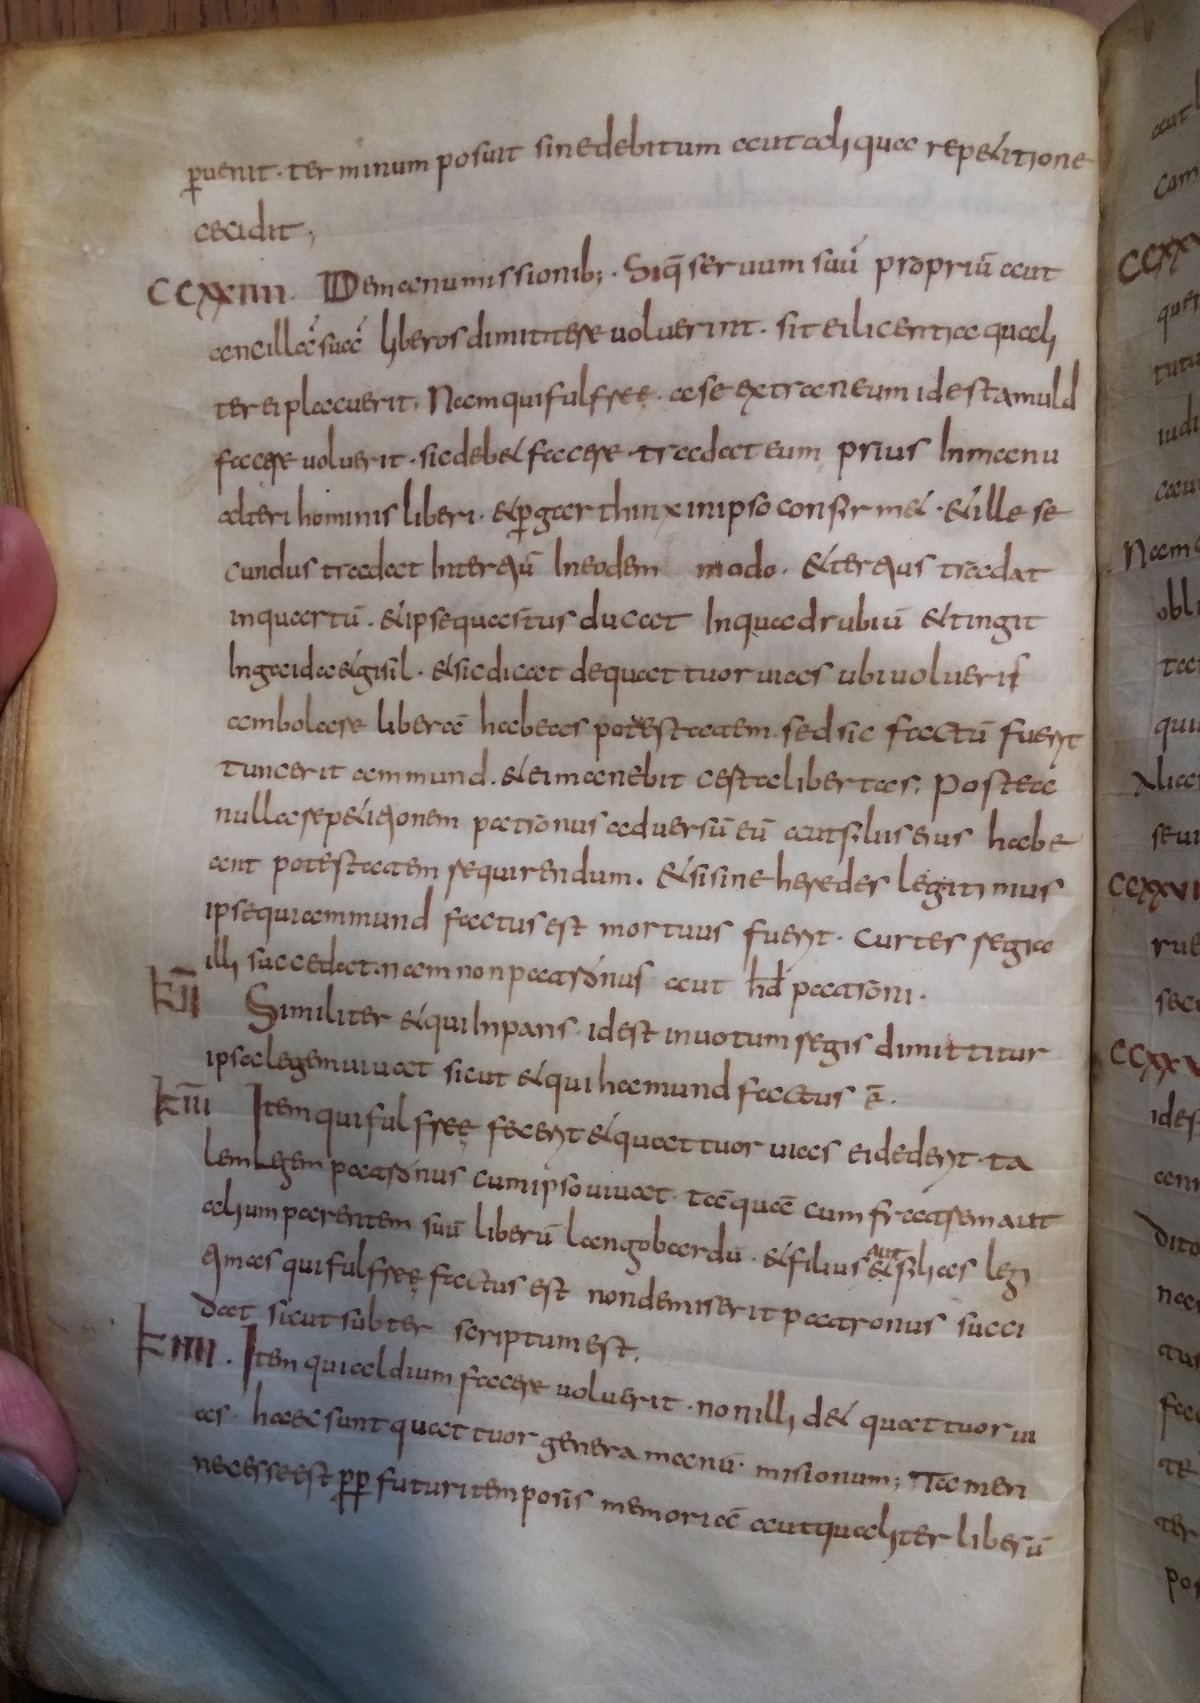 ꝑuenit · terminum posuit sine debitum aut aliqua repetitione
cecidit ;
CCXXIIII · De manumissionib; · Si q̄s seruum suū propriū aut
ancillā suā liberos dimittere uoluerint · sit ei licentia quali
ter ei placuerit · Nam qui fulfree · a se extraneum id est amuld
facere uoluerit · sic debet facere · tradat eum prius In manu
alteri hominis liberi · et ꝑ garthinx in ipso confirmet · et ille se
cundus tradat In tertiū In eodem modo · et tertius tradat
in quartū · et ipse quartus ducat In quadrubiū et tingit
In gaida et gisil · et sic dicat de quattuor uias ubi uolueris
ambolare liberā habeas potestatem · sed sic factū fuerit
tunc erit ammund · et ei manebit certa libertas · Postea
nulla repetitionem patronus aduersū eū aut filius eius habe
ant potestatem requirendum · et si sine heredes legitimus
ipse qui ammund factus est mortuus fuerit · curtes regia
illi succedat · nam non patronus aut hd patroni ·
k II Similiter et qui In pans · id est in uotum regis dimittitur
ipsa legem uiuat sicut et qui hamund factus ē ·
k III Item qui fulfree fecerit et quattuor uias ei dederit · ta
lem legem patronus cum ipso uiuat · tā quā cum fratrem aut
alium parentem suū liberū langobardū · et filius aut et filias legi
timas qui fulfree factus est non demiserit patronus succi
dat sicut subter scriptum est ·
k IIII · Item qui aldium facere uoluerit · non illi det quattuor ui
as · haec sunt quattuor genera manū · misionum ; Tamen
necesse est ꝓꝑ futuri temporis memoriā aut qualiter liberū